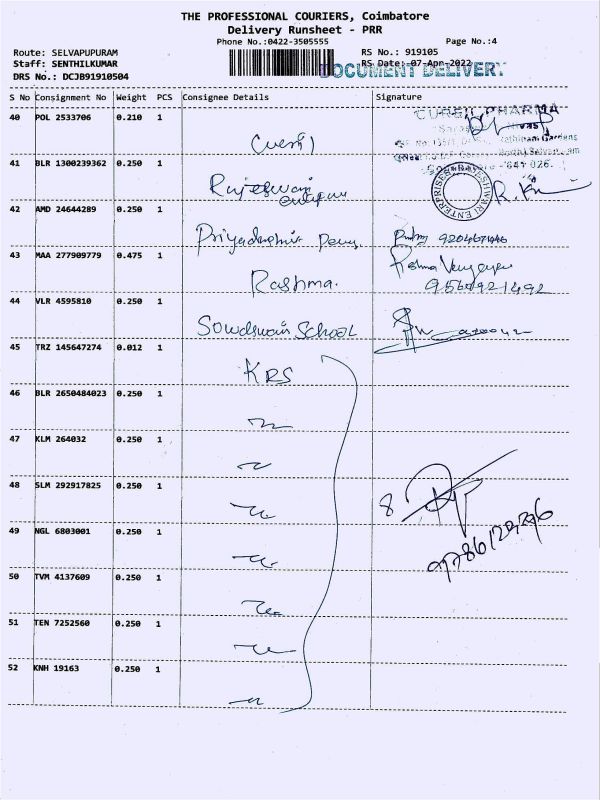 THE PROFESSIONAL COURIERS, Coimbatore
Delivery Runsheet - PRR
Phone No.:0422-3505555 Page No.:4
Route: SELVAPUPURAM RS No.: 919105
Staff: SENTHILKUMAR RS Date: 07-Apr-2022
DOCUMENT DELIVERY
DRS No.: DCJB91910504
S No Consignment No Weight PCS Consignee Details Signature
40 POL 2533706 0.210 1
PHARMA
41 BLR 1300239362 0.250 1
Rajeswari
ENTERPRISES RAJESHWARI
42 AMD 24644289 0.250 1
Priyadarshini
43 MAA 277909779 0.475 1
Rashma.
44 VLR 4595810 0.250 1
School
45 TRZ 145647274 0.012 1
KRS
46 BLR 2650484023 0.250 1
47 KLM 264032 0.250 1
48 SLM 292917825 0.250 1
8
49 NGL 6803001 0.250 1
50 TVM 4137609 0.250 1
51 TEN 7252560 0.250 1
52 KNH 19163 0.250 1